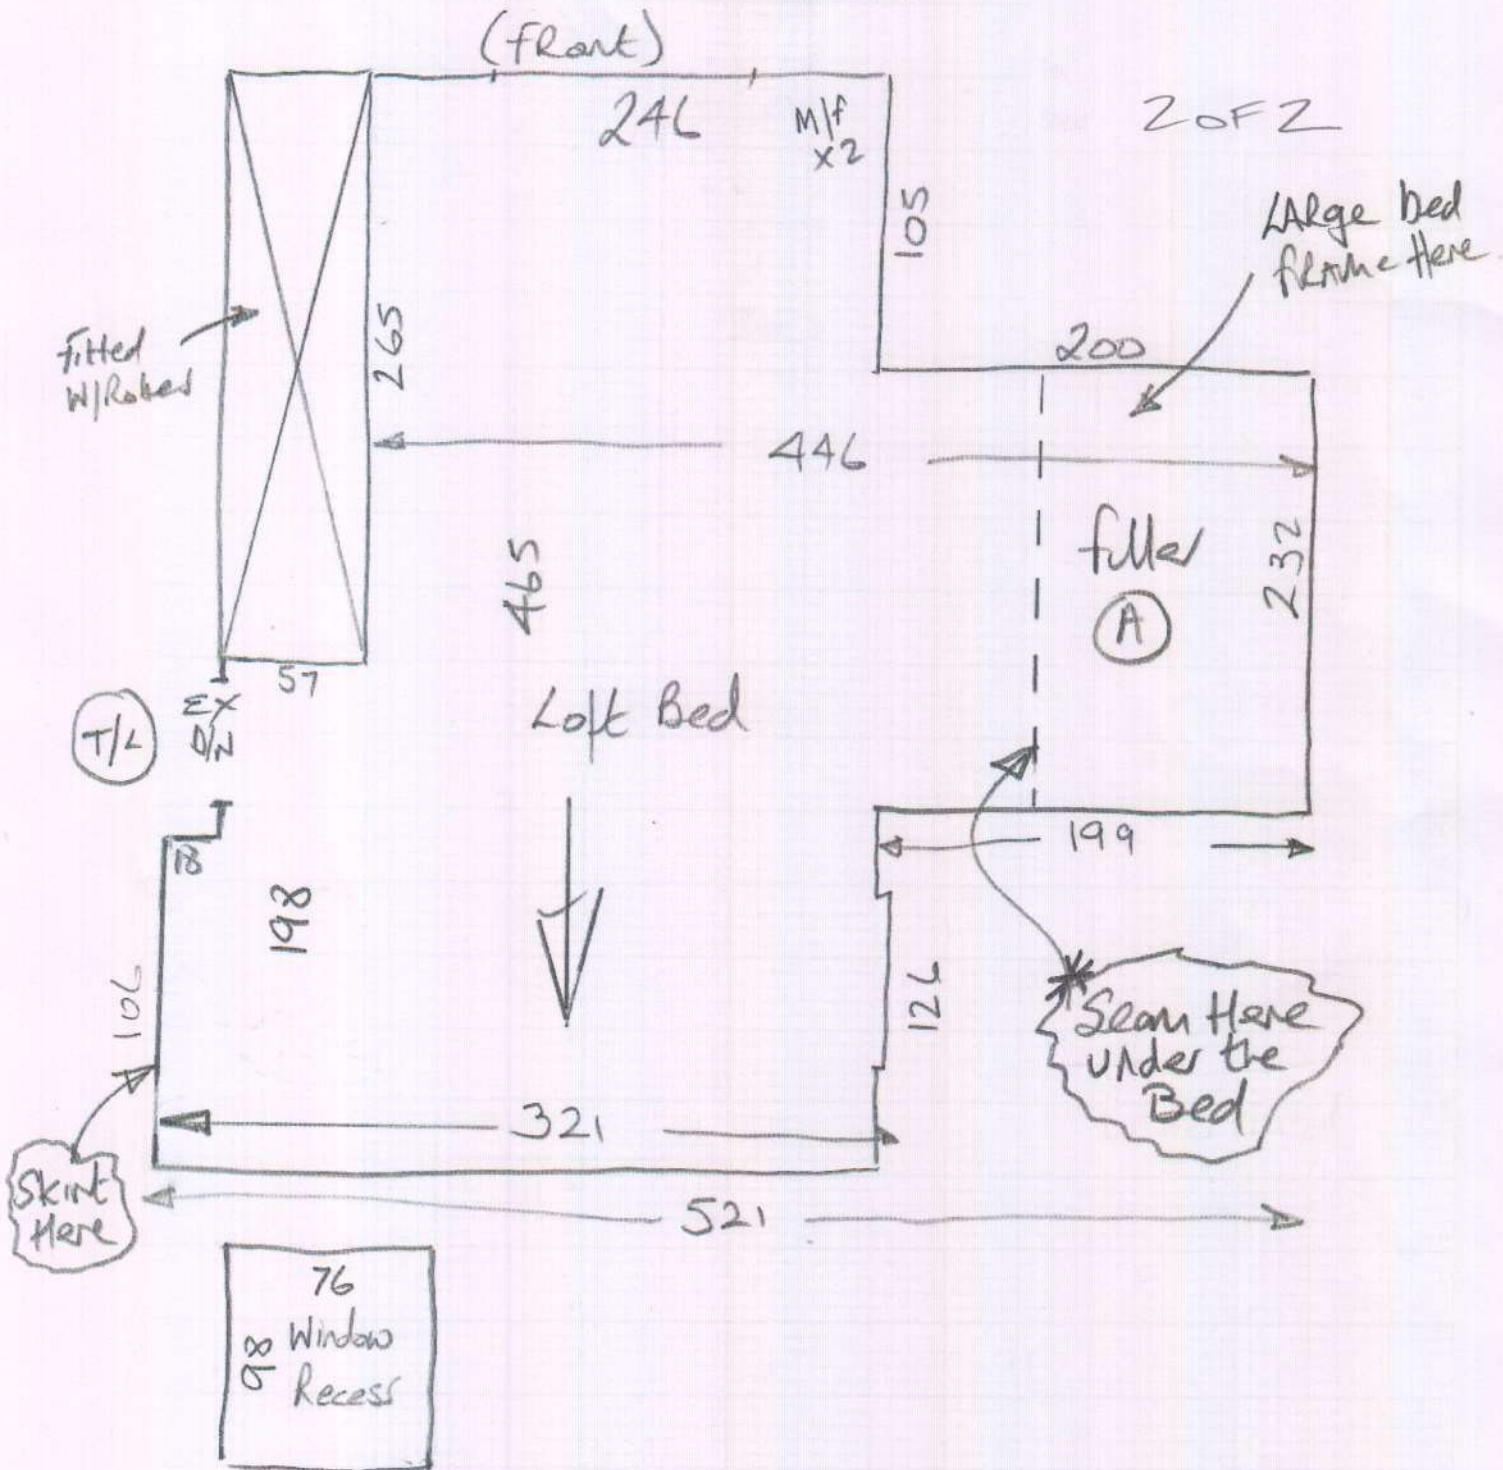 (front)
2 OF 2
246
M/f
x2
105
LARge bed
fRAMe Here
200
Fitted
W/Robes
265
446
465
filler
A
232
57
T/L
EX
D/N
Loft Bed
18
199
198
106
126
Seam Here
under the
Bed
321
Skirt
Here
521
76
98
Window
Recess